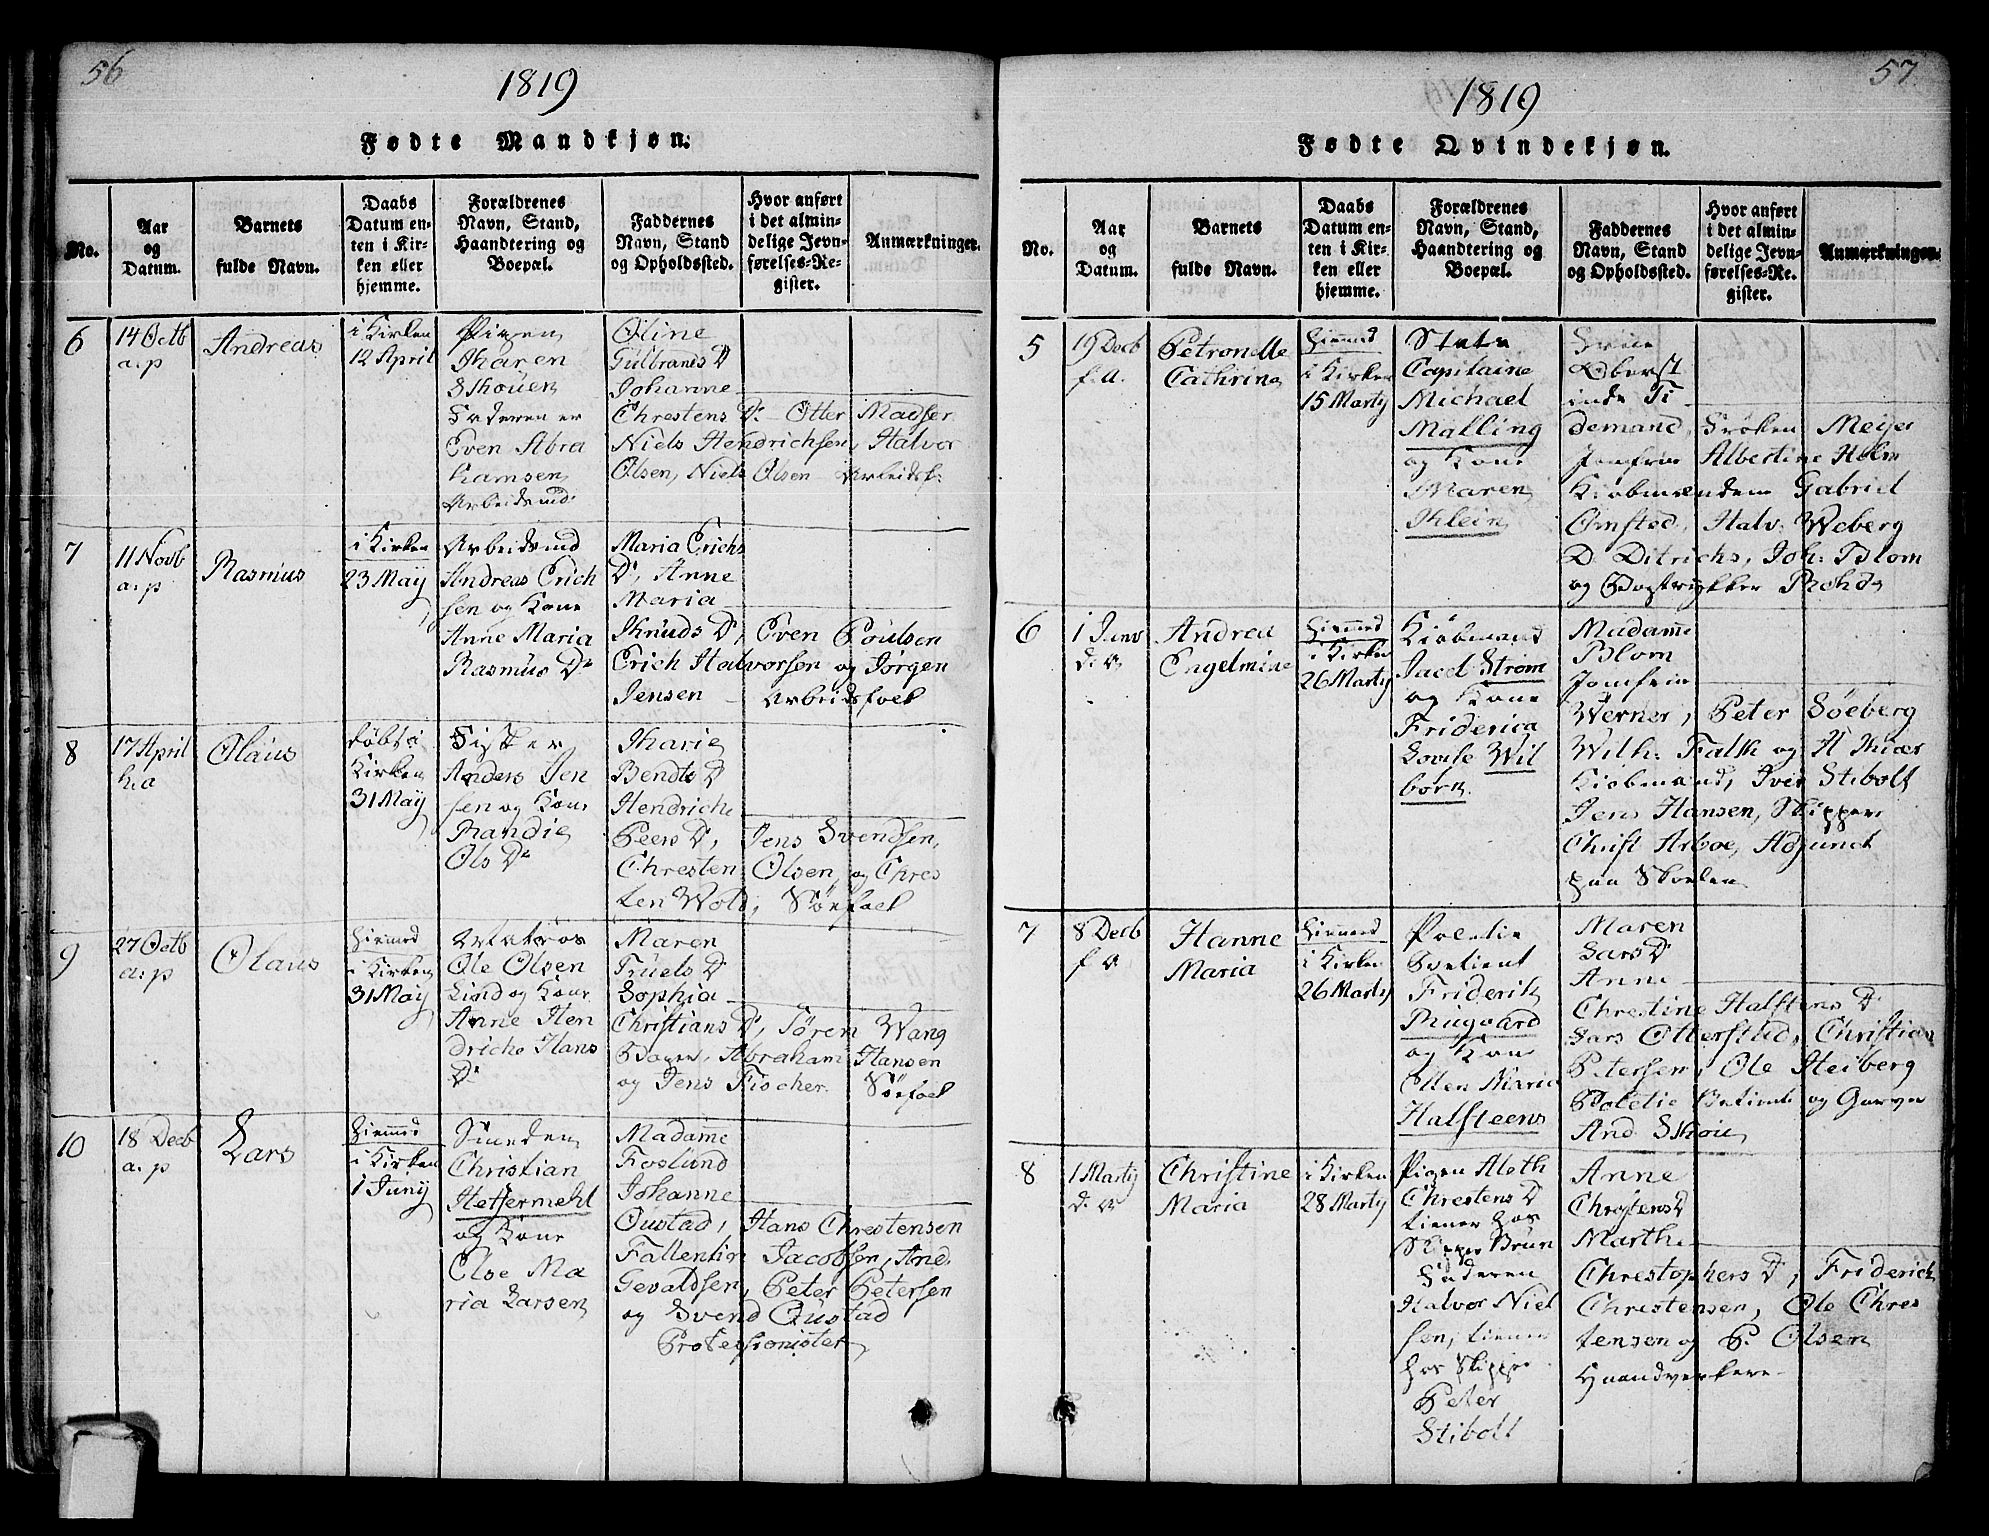 56
1819
Fødte Mandkjøn.
No.
Aar
og
Datum.
Barnets
fulde Navn.
Daabs
Datum en-
ten i Kir-
ken eller
hjemme.
Forældrenes
Navn, Stand,
Haandtering og
Boepæl.
Faddernes
Navn, Stand
og Opholdssted.
Hvor anført
i det almin-
delige Jevn-
førelses-Re-
gister.
Anmærkninger.
6
14 Octb
a. p
Andreas
i Kirken
12 April
Pigen
Karen
Skouen
Faderen er
Even Abra
hamsen
Arbeidsmd
Oline
Gulbrands D
Johanne
Chrestens D. Otter Madser
Niels Hendrichsen, Halvor
Olsen, Niels Olsen Arbeidsf.
7
11 Novb
a. p
Rasmus
i Kirken
23 May
Arbeidsmd
Andreas Erich
sen og Kone
Anne Maria
Rasmus Dr
Maria Erichs
D, Anne
Maria
Knuds D, Even Poulsen
Erich Halvorsen og Jørgen
Jensen Arbeidsfolk
8
17 April
h. a
Olaus
døbt i
Kirken
31 May
Fisker
Anders Jen
sen og Kone
Randie
Ols Dr
Karie
Bendts D
Hendriche
Peers D, Jens Svendsen,
Chresten Olsen, og Chres
ten Wold, Søefolk
9
27 Octb
a. p
Olaus
hiemmed
i Kirken
31 May
Matros
Ole Olsen
Lind og Kone
Anne Hen
driche Hans
D
Maren
Truels D
Sophia
Christians D, Søren Wang
Abraham Hansen
og Jens Fischer. Søefolk
10
18 Decb
a. p
Lars
hiemmed
i Kirken
1 Juny
Smeden
Christian
Heffermehl
og Kone
Else Ma
ria Larsen
Madame
Foslund
Johanne
Qustad, Hans Chrestensen
Fallentin Jacobsen, And.
Gevaldsen, Peter Petersen
og Svend Qustad
Professionister
57
1819
Fødte Qvindekjøn.
No.
Aar
og
Datum.
Barnets
fulde Navn.
Daabs
Datum en-
ten i Kir-
ken eller
hjemme.
Forældrenes
Navn, Stand,
Haandtering og
Boepæl.
Faddernes
Navn, Stand
og Opholdssted.
Hvor anført
i det almin-
delige Jevn-
førelses-Re-
gister.
Anmærkninger.
5
19 Decb
f. A.
Petronelle
Cathrine
hiemmed
i Kirken
15 Marty
Capitaine
Michael
Malling
og Kone
Maren
Klein
Oberst
inde Ti
demand, Frøken Meijer
Jomfru Albertine Holm
Kiøbmændene Gabriel
Omsted, Halv. Weberg
D. Ditrichs, Joh: Blom
og Bogtrykker Rohde
6
1 Janv
d. A
Andrea
Engelmine
hiemmed
i Kirken
26 Marty
Kiøbmand
Jacob Strøm
og Kone
Friderica
Lovise Wil
børn.
Madame
Blom
Jomfrue
Werner, Peter Søeberg
Wilh: Falk og A Kiær
Kiøbmænd, Iver Stibolt
Jens Hansen, Skipper
Christ Arboe, Adjunct
paa Skolen
7
8 Decb
f A
Hanne
Maria
hiemmed
i Kirken
26 Marty
Politie
Betient
Friderik
Rugaard
og Kone
Ellen Maria
Halfteens
Maren
Lars D
Anne
Christine Halftens D
Lars Otterstad, Christian
Petersen, Ole Heiberg
Poletie Betient og Garver
And. Skou
8
1 Marty
d. A
Christine
Maria
i Kirken
28 Marty
Pigen Aleth
Chrestens D
tiener hos
Skipper Brun
Faderen
Halvor Niel
sen, tiener
hos Skipper
Peter
Stibolt
Anne
Chrestens D
Marthe
Chrestophers D, Friderich
Chrestensen, Ole Chres
tensen og P. Olsen
Haandverkere